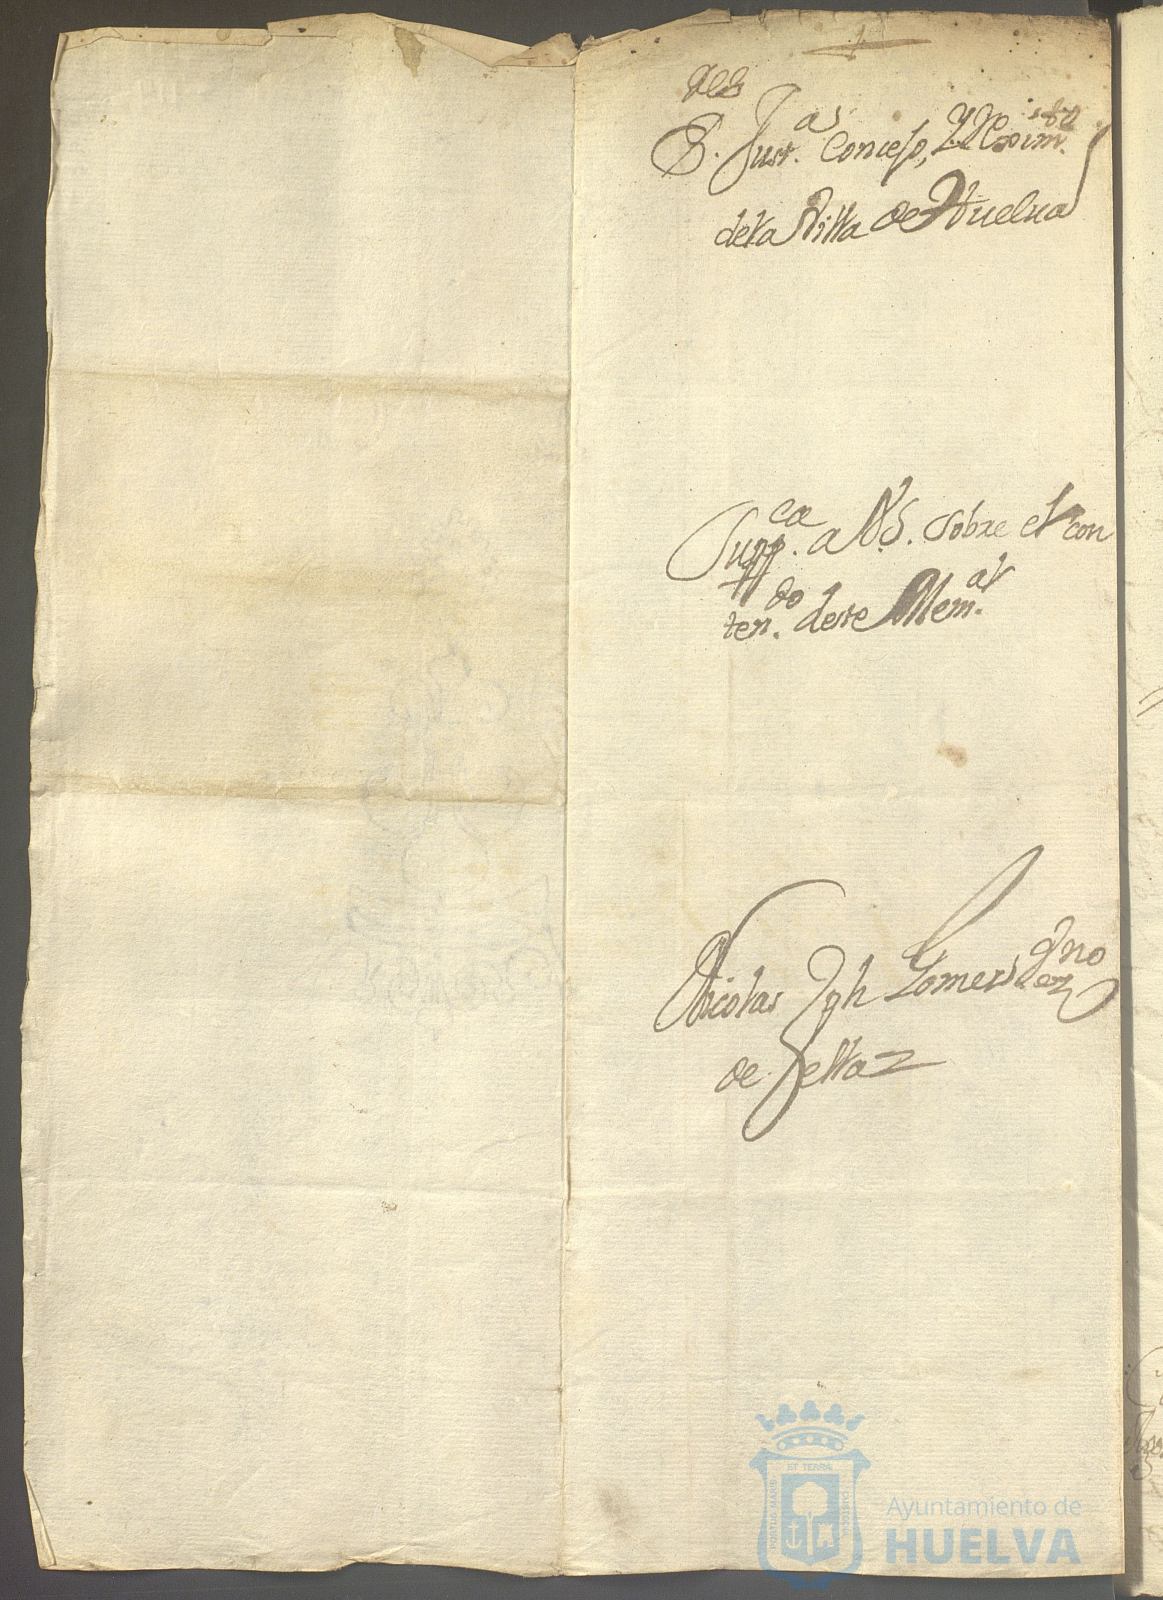 S.res Just.as Concejo, y Rexim.to
de la Villa de Huelva
Supp.ca a V.S. sobre el con
ten.do deste Mem.al
Nicolas Jph Gomes
de
ET TERRAE
PORTUS MARIS
CUSTODIA
Ayuntamiento de
HUELVA